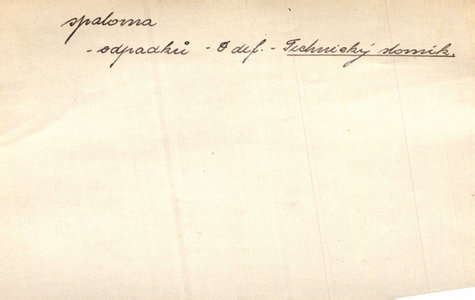 spalovna
- odpadků - O def. - Technický slovník.